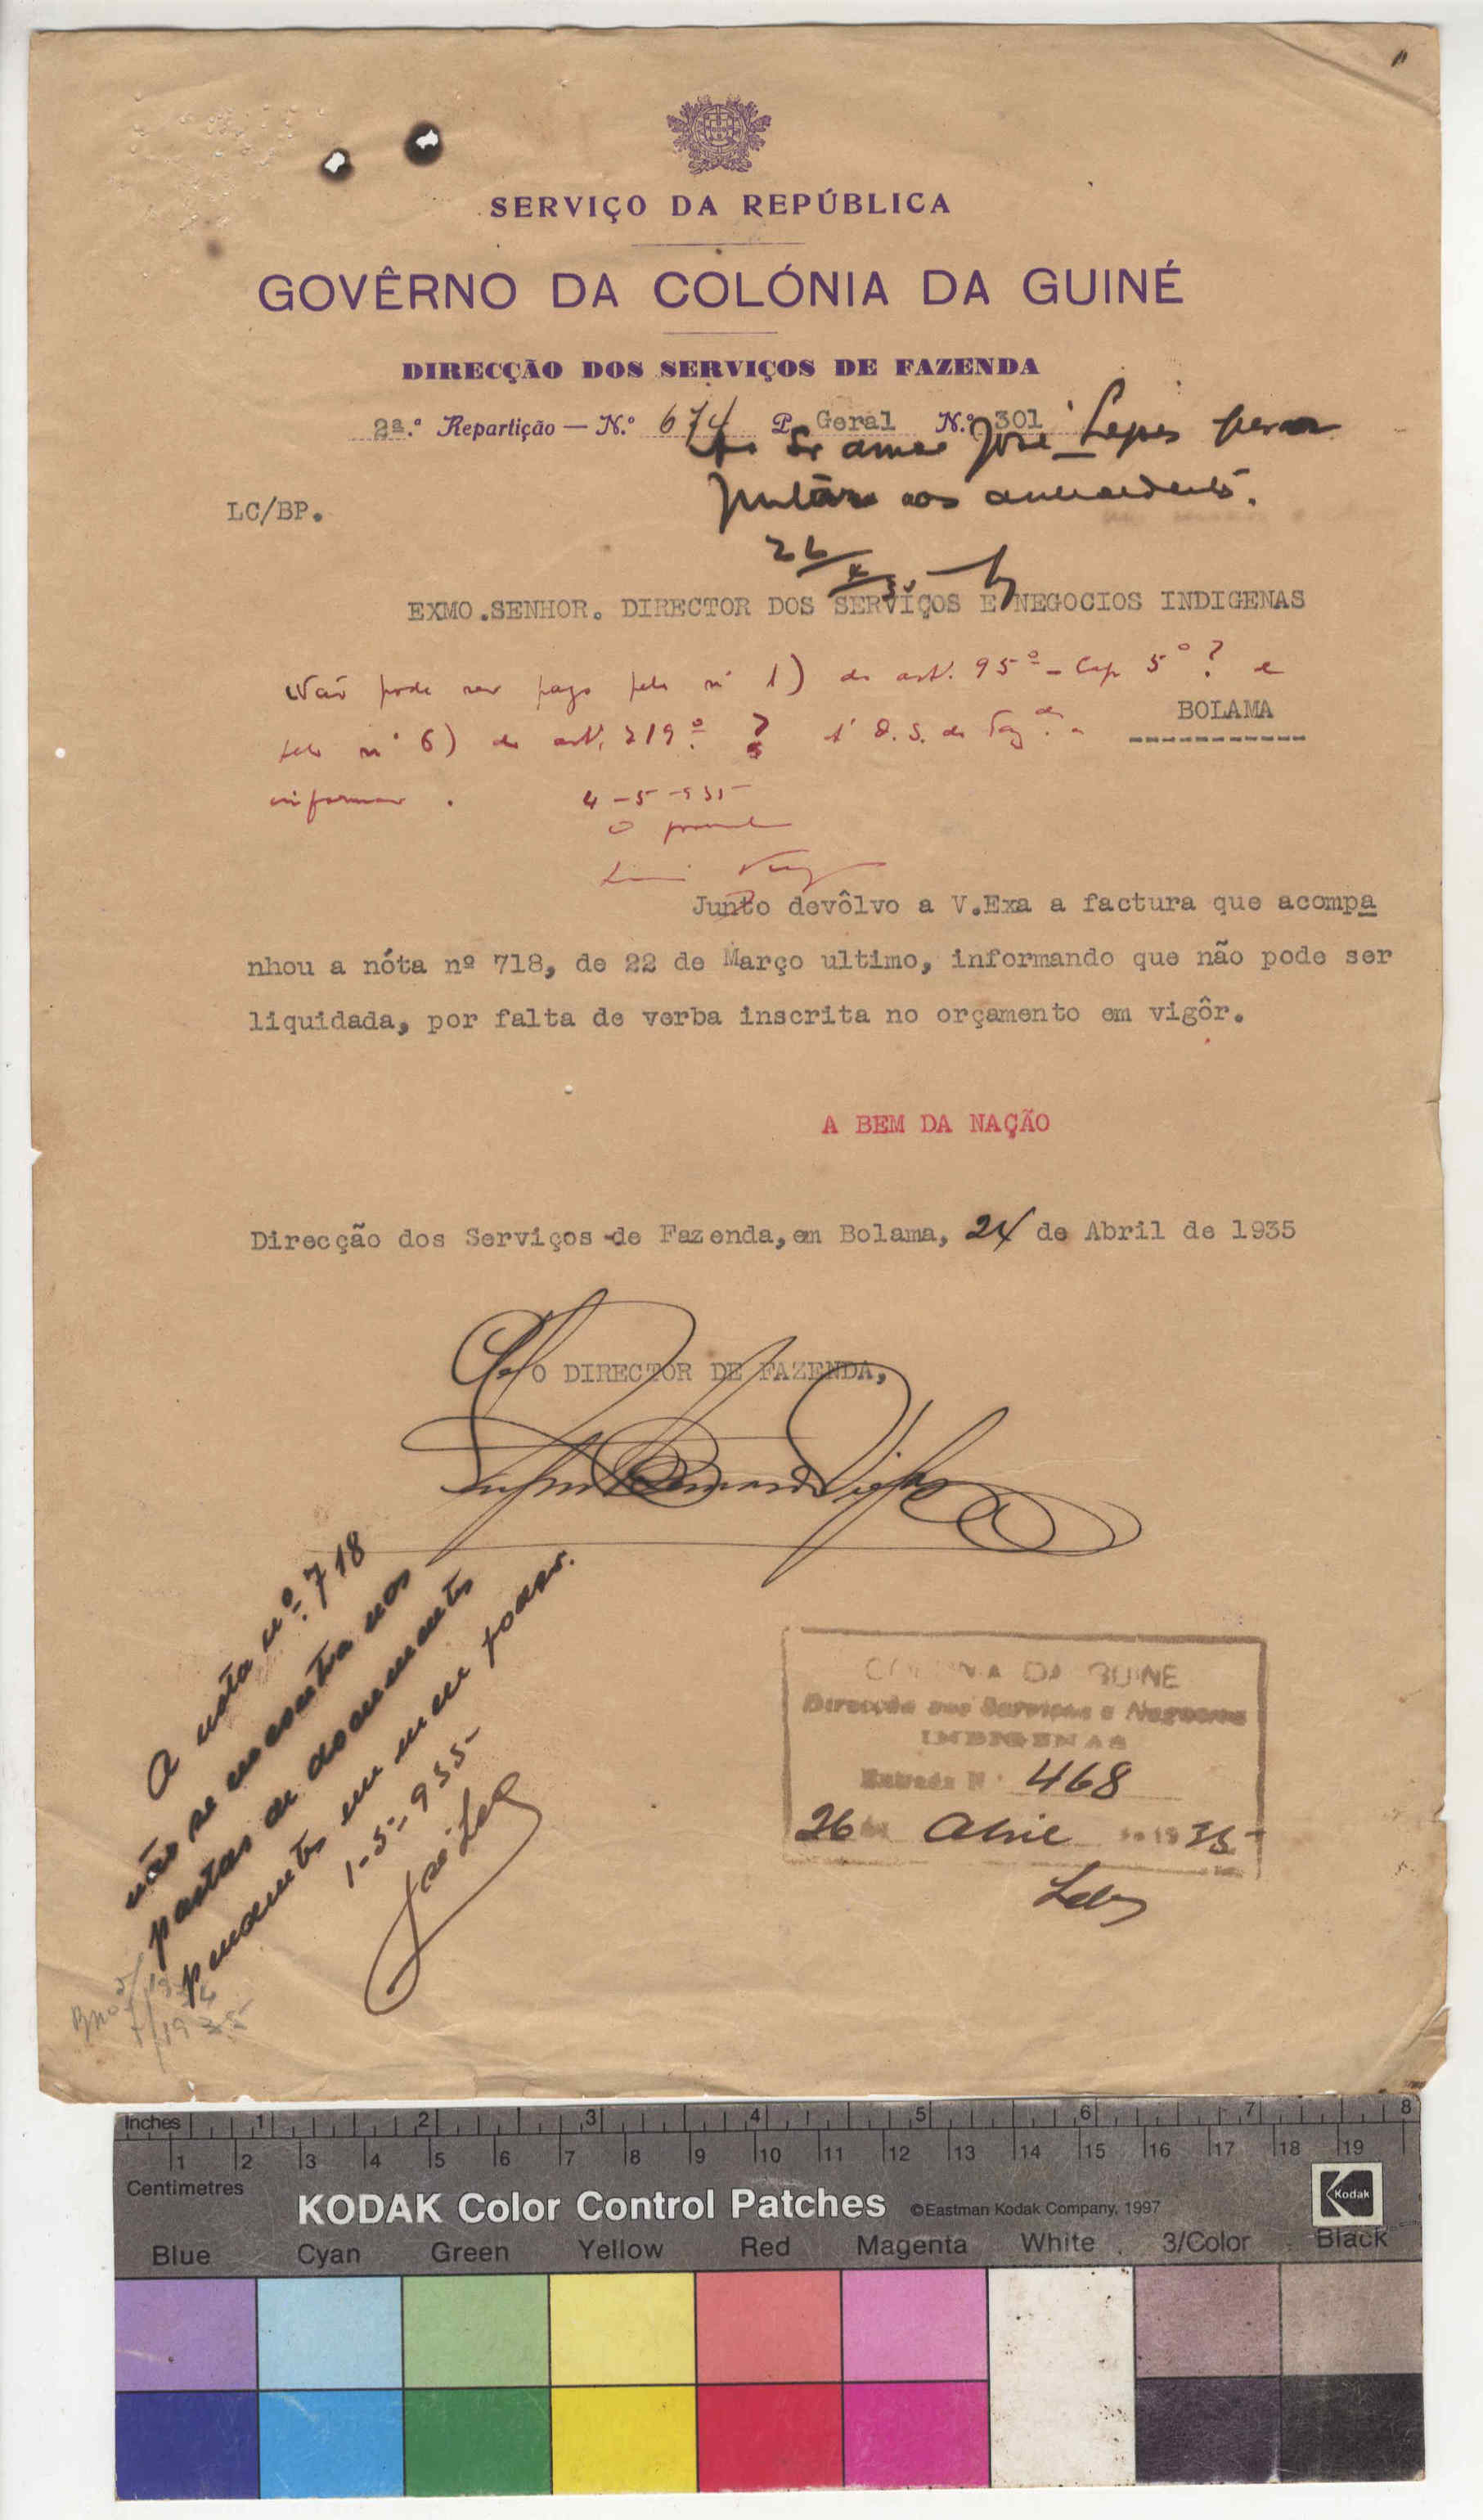 SERVIÇO DA REPÚBLICA
GOVÊRNO DA COLÓNIA DA GUINÉ
DIRECÇÃO DOS SERVIÇOS DE FAZENDA
2ª.ª Repartição — N.º 674 P. Geral N.º 301
Ao Sr José Lopes para
juntar aos antecedentes.
26/4/35
LC/BP.
EXMO.SENHOR. DIRECTOR DOS SERVIÇOS E NEGOCIOS INDIGENAS
Não pode ser pago pelo nº 1) do art. 95º - Cap 5º? e
BOLAMA
pelo nº 6) do art. 219º? á D. S. de Fazda. a
informar.
4-5-935
Junto devôlvo a V.Exa a factura que acompa
nhou a nóta nº 718, de 22 de Março ultimo, informando que não pode ser
liquidada, por falta de verba inscrita no orçamento em vigôr.
A BEM DA NAÇÃO
Direcção dos Serviços de Fazenda, em Bolama, 24 de Abril de 1935
Pelo O DIRECTOR DE FAZENDA,
A nota nº. 718
não se encontra nas
pastas de documentos
pendentes em meu poder.
1-5-935-
COLONIA DA GUINE
Direcção dos Serviços e Negocios
INDIGENAS
Entrada Nº 468
26 de Abril de 1935
Inches 1 2 3 4 5 6 7 8
1 2 3 4 5 6 7 8 9 10 11 12 13 14 15 16 17 18 19
Centimetres
KODAK Color Control Patches ©Eastman Kodak Company, 1997 Kodak
Blue Cyan Green Yellow Red Magenta White 3/Color Black